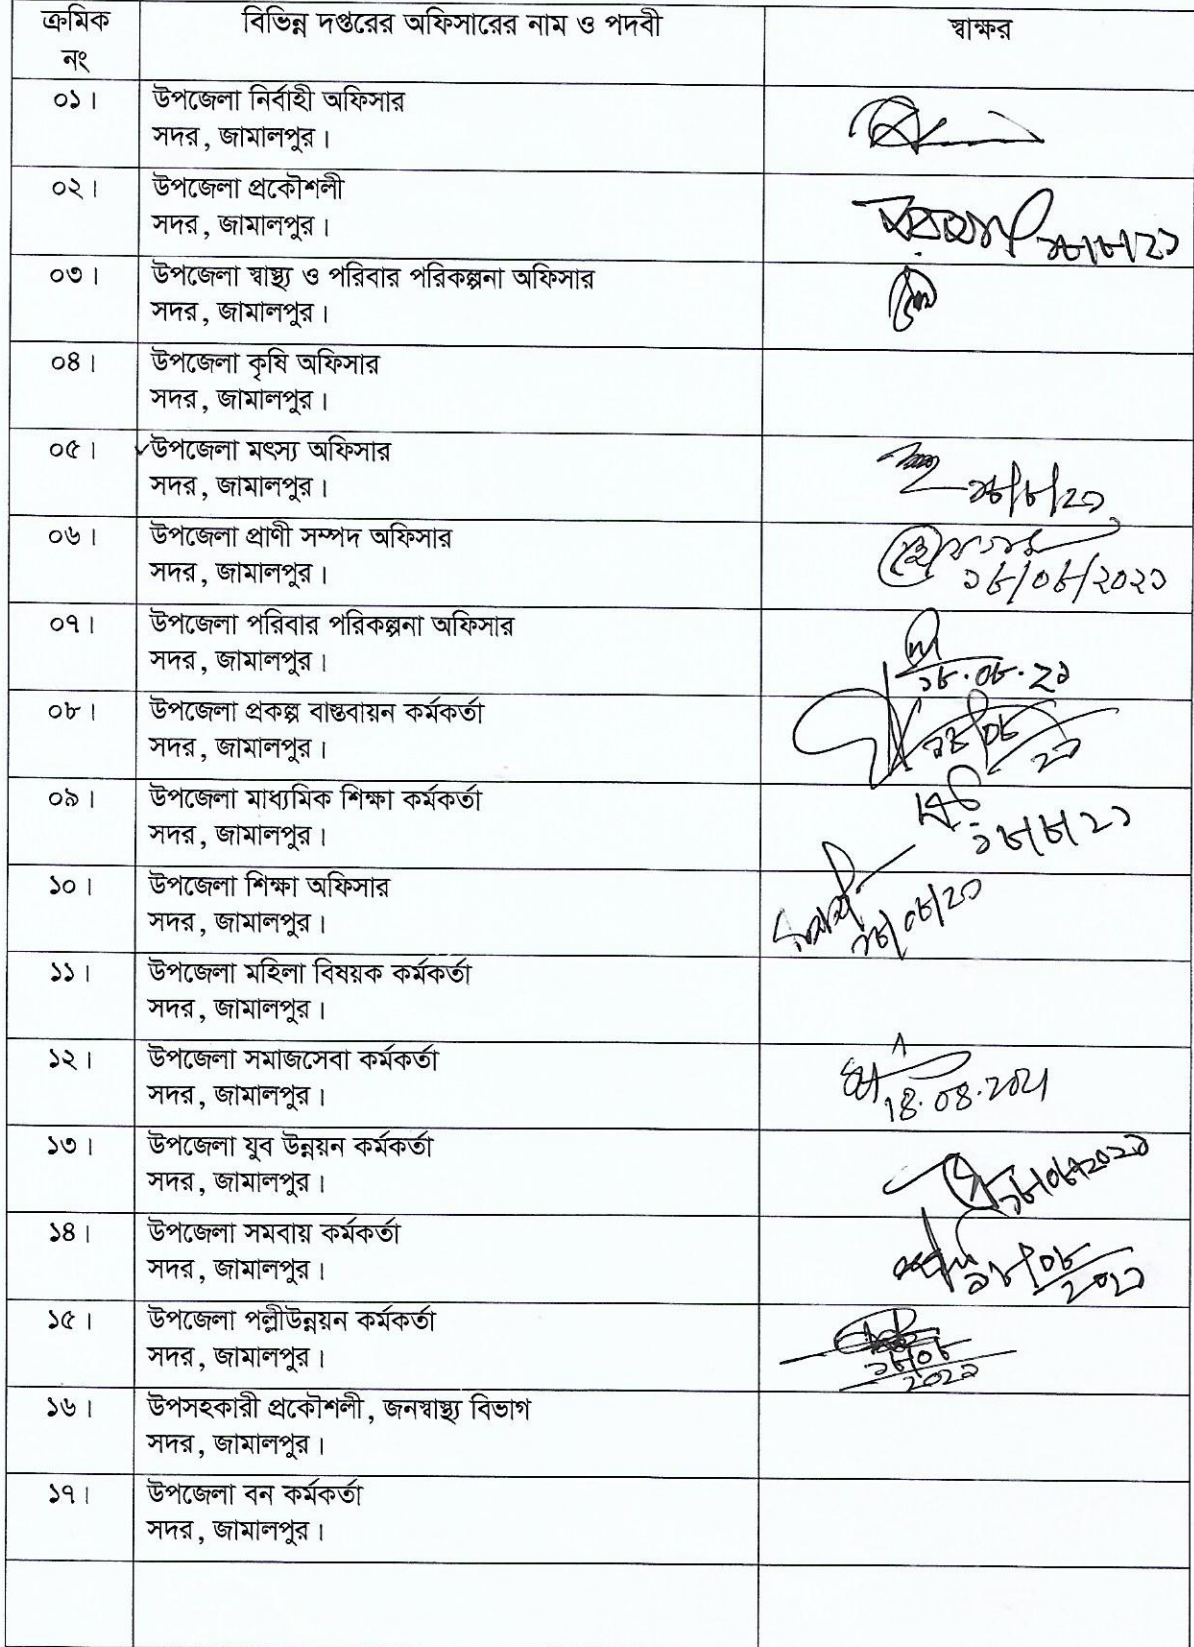 ক্রমিক নং বিভিন্ন দপ্তরের অফিসারের নাম ও পদবী স্বাক্ষর
০১। উপজেলা নির্বাহী অফিসার
সদর, জামালপুর।
০২। উপজেলা প্রকৌশলী
সদর, জামালপুর। ১৮/৮/২১
০৩। উপজেলা স্বাস্থ্য ও পরিবার পরিকল্পনা অফিসার
সদর, জামালপুর।
০৪। উপজেলা কৃষি অফিসার
সদর, জামালপুর।
০৫। উপজেলা মৎস্য অফিসার
সদর, জামালপুর। ১৮/৮/২১
০৬। উপজেলা প্রাণী সম্পদ অফিসার
সদর, জামালপুর। ১৮/০৮/২০২১
০৭। উপজেলা পরিবার পরিকল্পনা অফিসার
সদর, জামালপুর। ১৮.০৮.২১
০৮। উপজেলা প্রকল্প বাস্তবায়ন কর্মকর্তা
সদর, জামালপুর। ১৮/০৮/২১
০৯। উপজেলা মাধ্যমিক শিক্ষা কর্মকর্তা
সদর, জামালপুর। ১৮/৮/২১
১০। উপজেলা শিক্ষা অফিসার
সদর, জামালপুর। ১৮/০৮/২১
১১। উপজেলা মহিলা বিষয়ক কর্মকর্তা
সদর, জামালপুর।
১২। উপজেলা সমাজসেবা কর্মকর্তা
সদর, জামালপুর। 18.08.2021
১৩। উপজেলা যুব উন্নয়ন কর্মকর্তা
সদর, জামালপুর। ১৮/০৮/২০২১
১৪। উপজেলা সমবায় কর্মকর্তা
সদর, জামালপুর। ১৮/০৮/২০২১
১৫। উপজেলা পল্লীউন্নয়ন কর্মকর্তা
সদর, জামালপুর। ১৮/০৮/২০২১
১৬। উপসহকারী প্রকৌশলী, জনস্বাস্থ্য বিভাগ
সদর, জামালপুর।
১৭। উপজেলা বন কর্মকর্তা
সদর, জামালপুর।